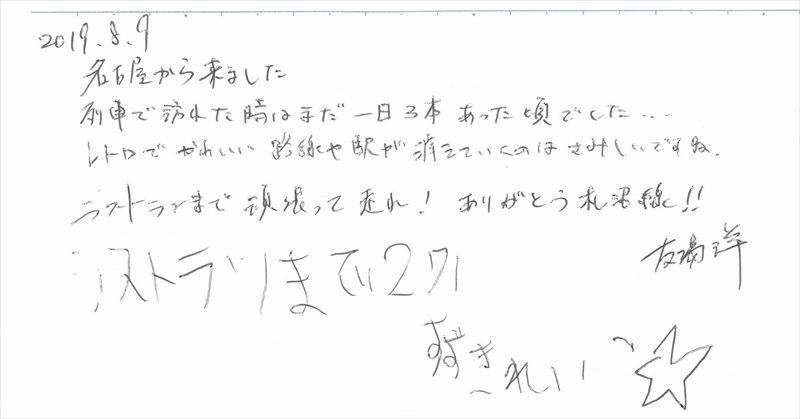 2019.8.9
名古屋から来ました
列車で訪れた時はまだ一日3本あった頃でした...
レトロでかわいい路線や駅が消えていくのはさみしいですね.
ラストランまで頑張って走れ! ありがとう札沼線!!
ラストランまで
すずき
れいい